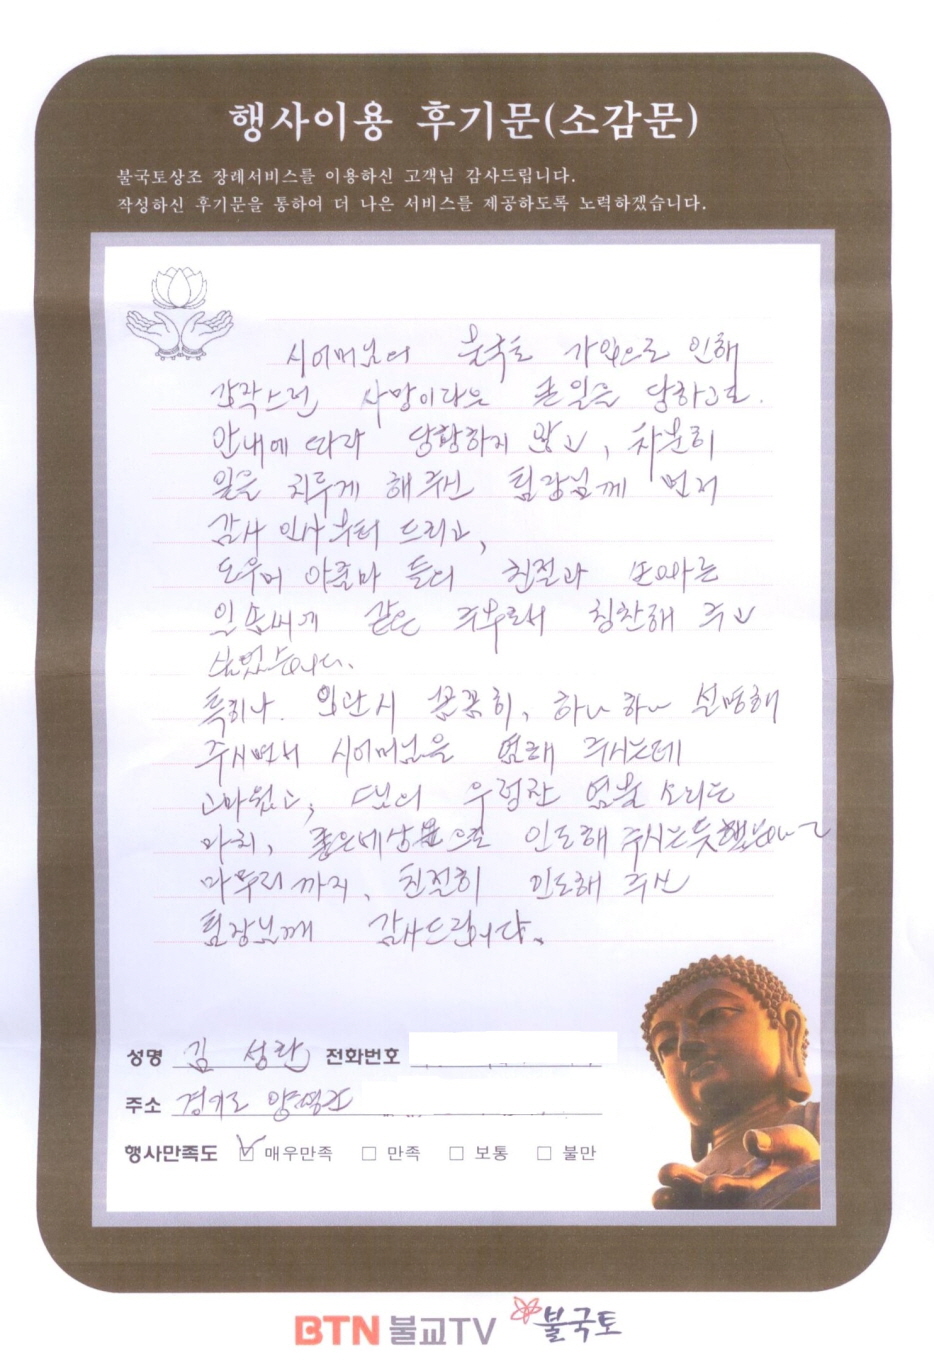 행사이용 후기문(소감문)
불국토상조 장례서비스를 이용하신 고객님 감사드립니다.
작성하신 후기문을 통하여 더 나은 서비스를 제공하도록 노력하겠습니다.
시어머님의 불국토 가입으로 인해
갑작스런 사망이라는 큰 일을 당하고도.
안내에 따라 당황하지 않고, 차분히
일을 치루게 해주신 팀장님께 먼저
감사 인사부터 드리고,
도우미 아줌마 들의 친절과
일솜씨에 같은 주부로서 칭찬해 주고
싶었습니다.
특히나. 입관시 꼼꼼히, 하나 하나 설명해
주시면서 시어머님을 염해 주시는데
고마웠고, 우렁찬 염불 소리는
마치, 좋은세상 으로 인도해 주시는듯했습니다
마무리까지, 친절히 인도해 주신
팀장님께 감사드립니다.
성명 김 성란 전화번호
주소 경기도
행사만족도 ☑ 매우만족 □ 만족 □ 보통 □ 불만
BTN 불교TV 불국토